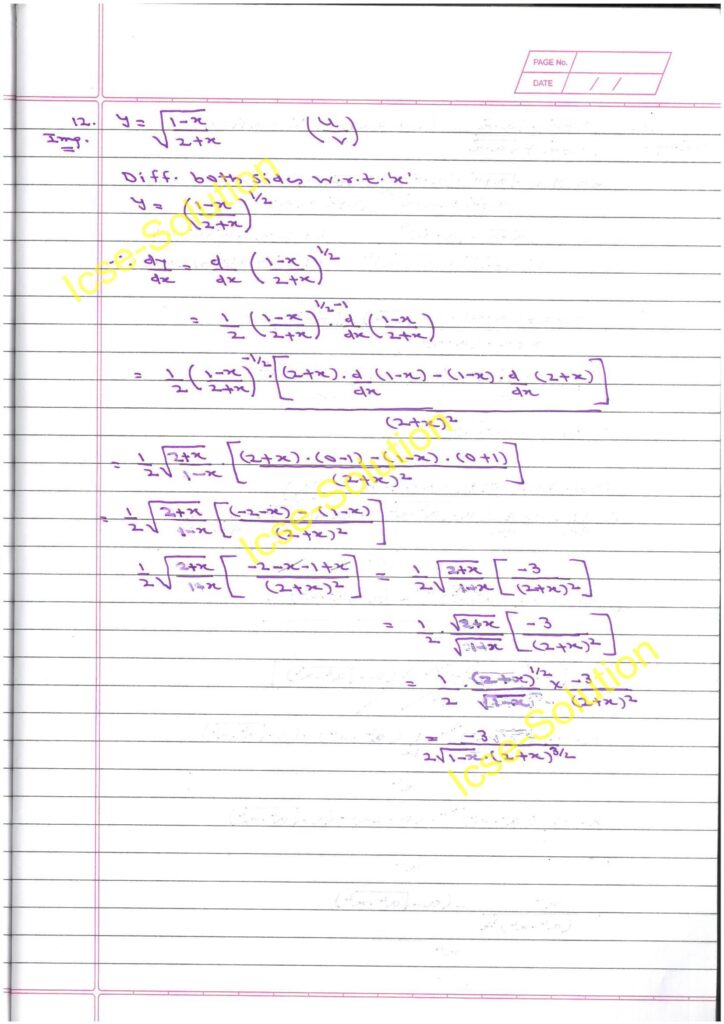 PAGE No.
DATE / /
12. y = √((1-x)/(2+x)) (u/v)
Imp.
Diff. both sides w.r.t. 'x'
y = ((1-x)/(2+x))^1/2
∴ dy/dx = d/dx ((1-x)/(2+x))^1/2
= 1/2 ((1-x)/(2+x))^1/2-1 · d/dx ((1-x)/(2+x))
= 1/2 ((1-x)/(2+x))^-1/2 · [(2+x) · d/dx (1-x) - (1-x) · d/dx (2+x)] / (2+x)²
= 1/2 √((2+x)/(1-x)) · [((2+x) · (0-1) - (1-x) · (0+1))/(2+x)²]
= 1/2 √((2+x)/(1-x)) [((-2-x) - (1-x))/(2+x)²]
1/2 √((2+x)/(1-x)) [(-2-x-1+x)/(2+x)²] = 1/2 √((2+x)/(1-x)) [-3/(2+x)²]
= 1/2 · √(2+x)/√(1-x) [-3/(2+x)²]
= 1/2 · (2+x)^1/2/√(1-x) × -3/(2+x)²
= -3/(2√(1-x) · (2+x)^3/2)
Icse-Solution
Icse-Solution
Icse-Solution